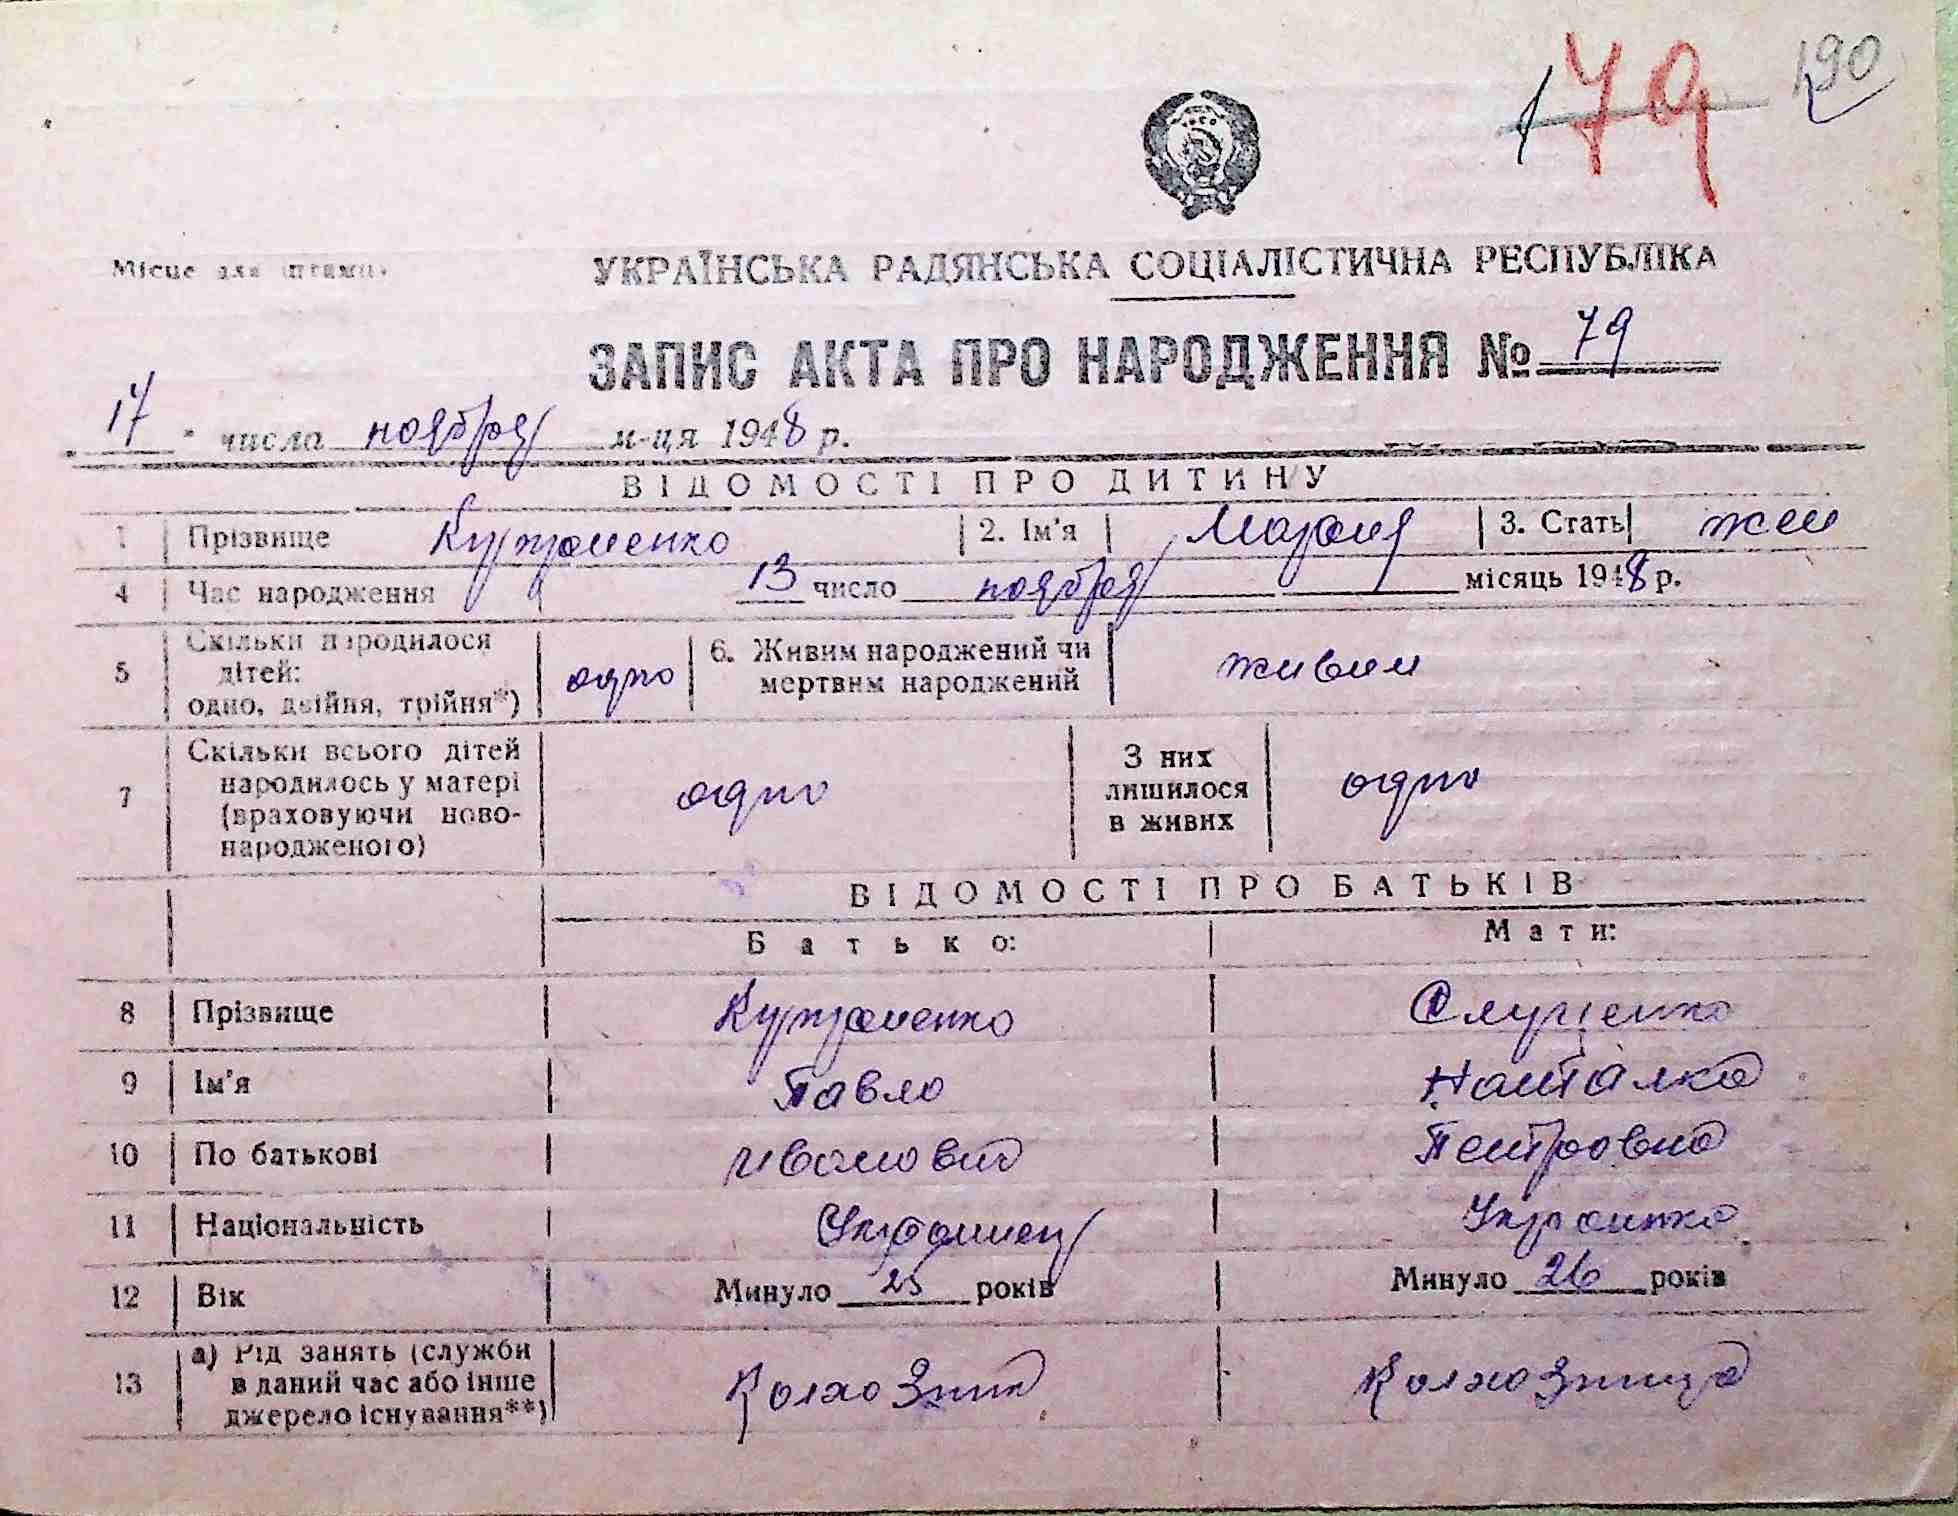 79 190
Місце для штампу
УКРАЇНСЬКА РАДЯНСЬКА СОЦІАЛІСТИЧНА РЕСПУБЛІКА
ЗАПИС АКТА ПРО НАРОДЖЕННЯ № 79
17 числа ноября м-ця 1948 р.
ВІДОМОСТІ ПРО ДИТИНУ
1 Прізвище 2. Ім'я Мария 3. Стать жен
4 Час народження 13 число ноября місяць 1948 р.
5 Скільки народилося дітей: одно, двійня, трійня*) одно 6. Живим народжений чи мертвим народжений живим
7 Скільки всього дітей народилось у матері (враховуючи новонародженого) одно З них лишилося в живих одно
ВІДОМОСТІ ПРО БАТЬКІВ
Батько: Мати:
8 Прізвище
9 Ім'я Павло Наталка
10 По батькові Иванович Петровна
11 Національність Украинец Украинка
12 Вік Минуло 25 років Минуло 26 років
13 а) Рід занять (служби в даний час або інше джерело існування**) Колхозник Колхозница